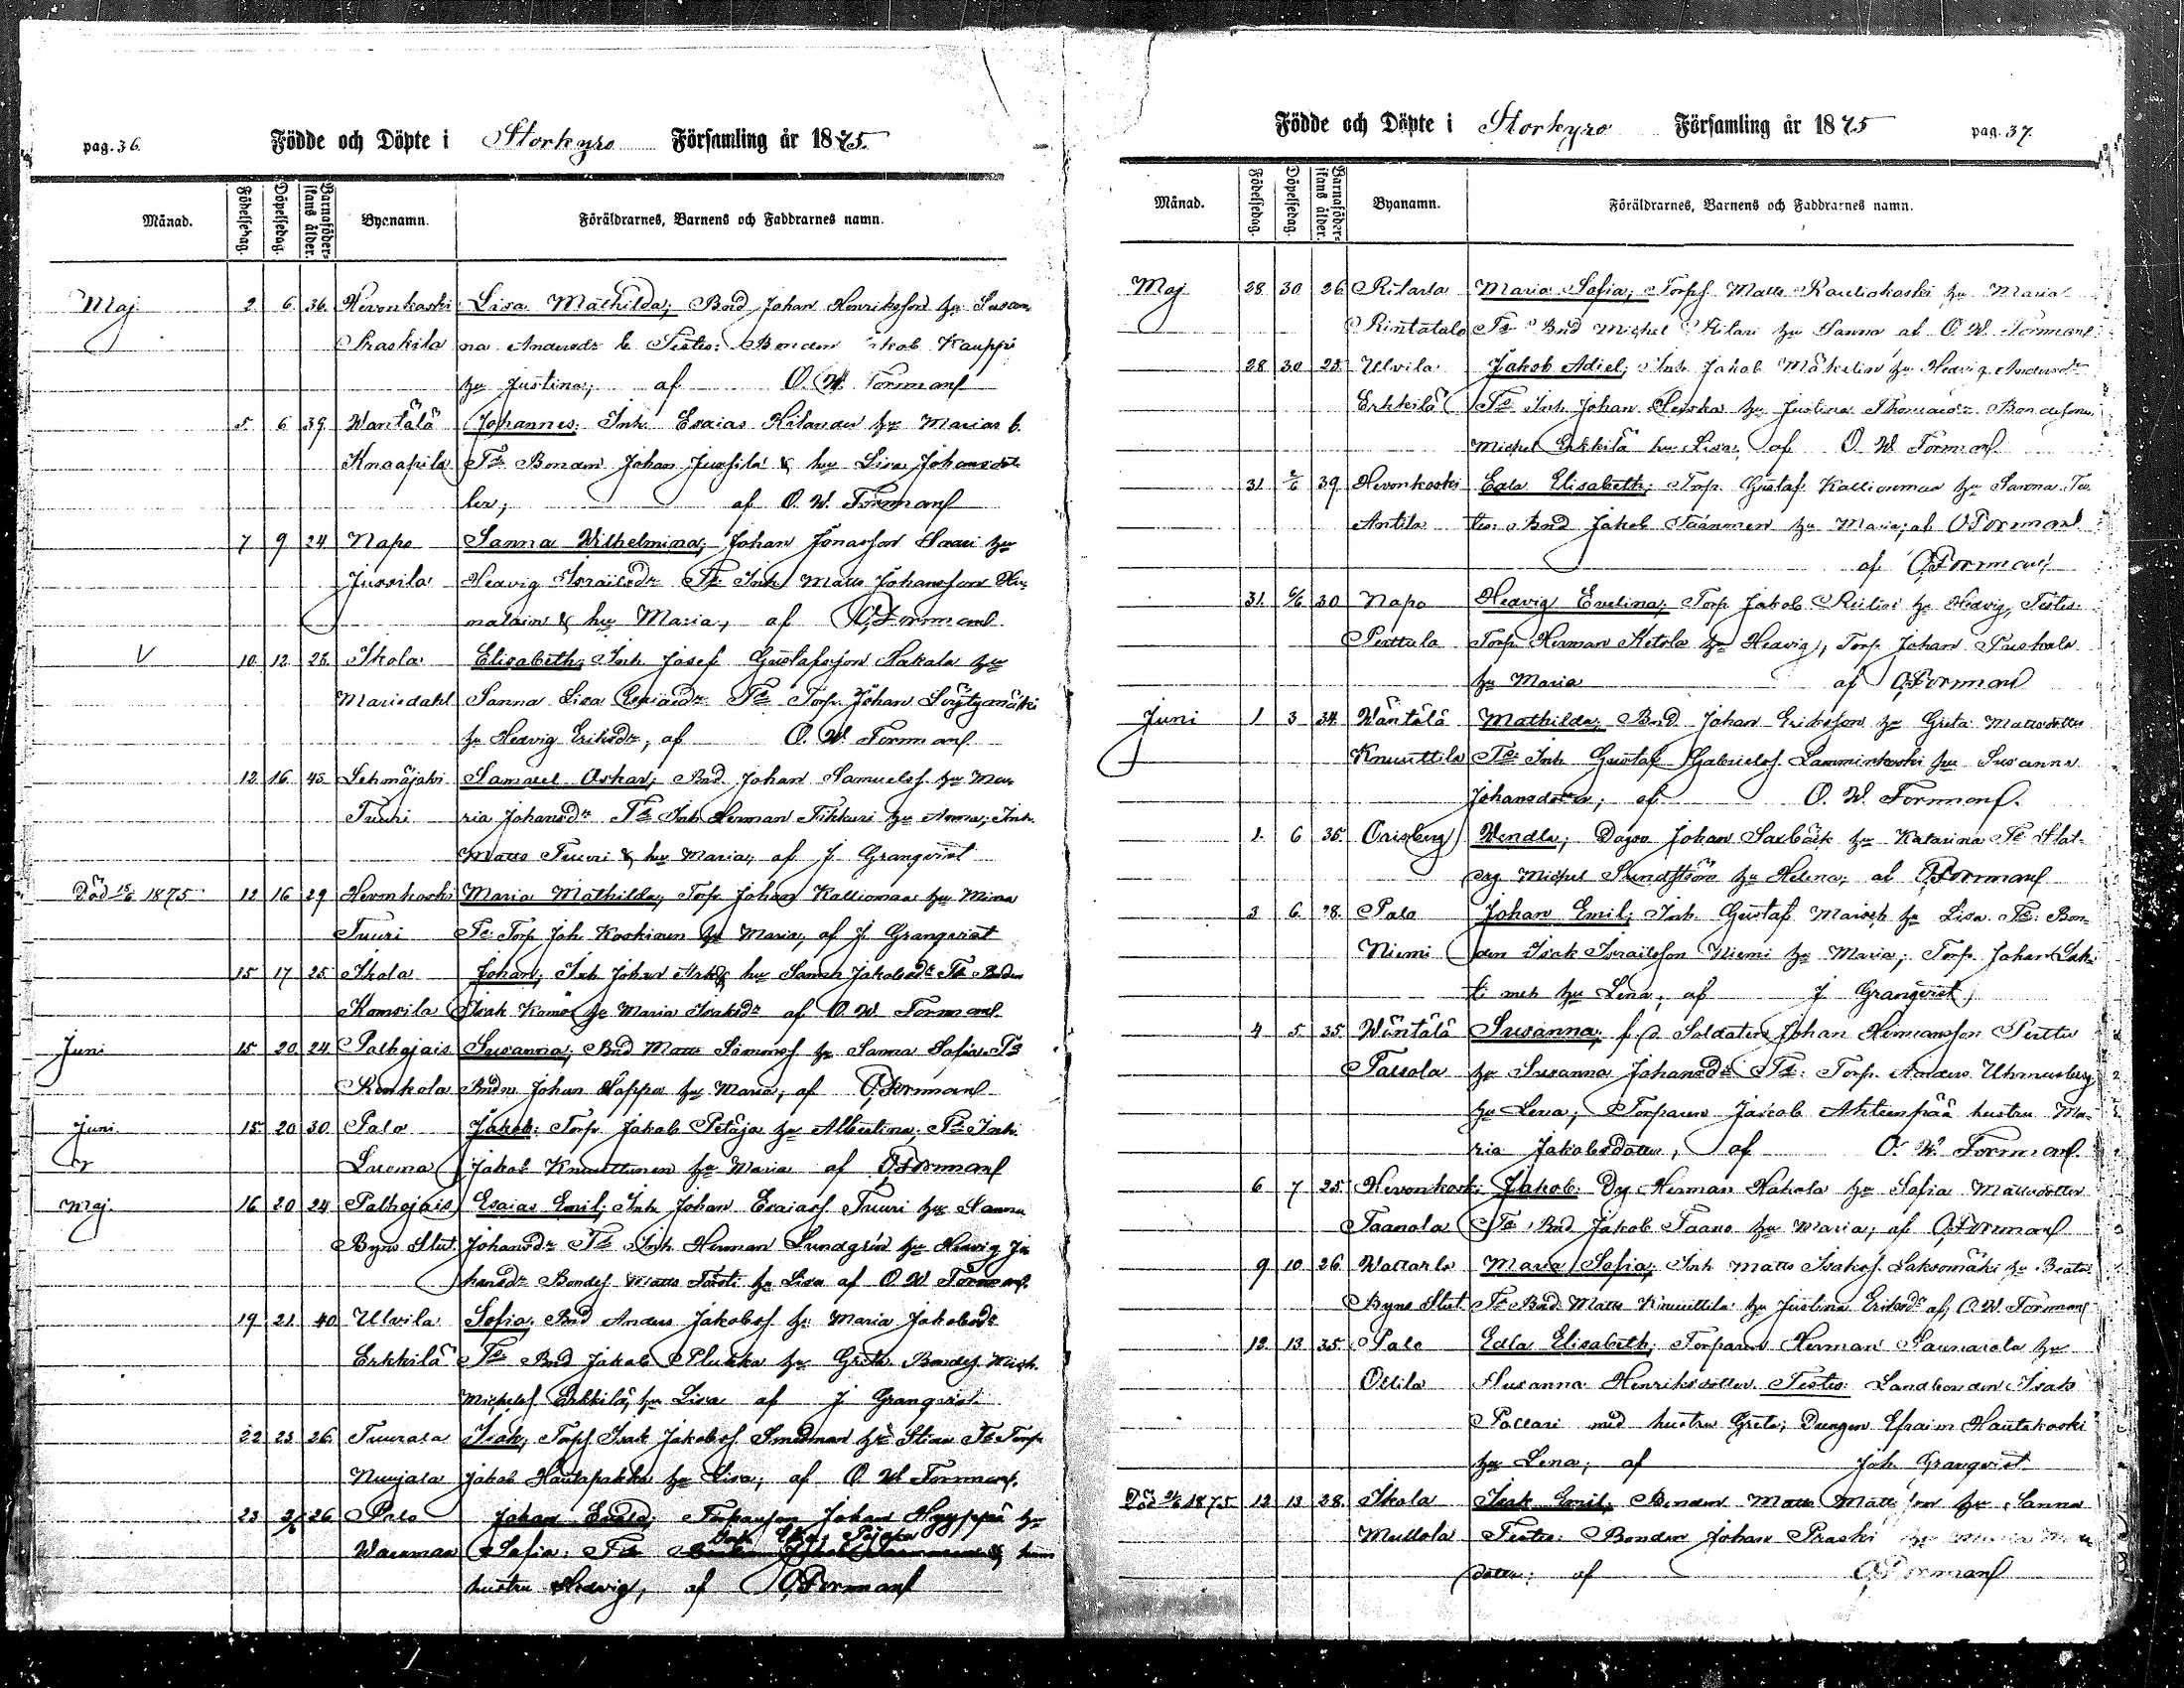 pag. 36.
Födde och Döpte i Storkyro Församling år 1875.
Månad. Födelsedag. Döpelsedag. Barnaföderskans ålder. Byanamn. Föräldrarnes, Barnens och Faddrarnes namn.
Maj 2 6 36 Hevonkoski Lisa Mathilda; Bnd Johan Henriksson hu Susan-
Praskila na Andersdr b. Testes: Bonden Jakob Kauppi
hu Justina; af O. W. Forsman
5 6 39 Wäntälä Johannes; Inh. Esaias Kilander hu Maria b.
Knaapila Ts Bonden Johan Jussila & hu Lisa Johansdot
ter; af O. W. Forsman
7 9 24 Napo Sanna Wilhelmina; Johan Jonasson hu
Jussila Hedvig Israelsdr Ts Inh Matts Johansson
& hu Maria, af O. Forsman
V 10 12 28 Ikola Elisabeth; Inh Josef Gustafsson Hakala hu
Mariedahl Sanna Lisa Esaiasdr Ts Torp. Johan Löytymäki
hu Hedvig Eriksdr, af O. W. Forsman
12 16 45 Lehmäjoki Samuel Oskar; Bnd Johan Samuelss. hu Ma-
Tuuri ria Johansdr Ts Inh Herman Tikkuri hu Anna; Inh.
Matts Tuuri & hu Maria; af J. Granqvist
Död 15/6 1875 12 16 29 Hevonkoski Maria Mathilda; Torp Johan Kalliomaa hu Mina
Tuuri Ts: Torp Joh. Koskinen hu Maria; af J. Granqvist
15 17 25 Ikola Johan; Inh Johan & hu Sanna Jakobsdr Ts Bonden
Komsila Isak hu Maria Isaksdr af O. W. Forsman
Juni 15 20 24 Palhojais Susanna; Bnd Matts hu Sanna Sofia Ts
Konkola Bndn Johan Sappa hu Maria; af O. Forsman
Juni 15 20 30 Palo Jakob; Torp Jakob Petäjä hu Albertina; Ts Inh.
Luoma Jakob Knuuttinen hu Maria af O. Forsman
Maj. 16 20 24 Palhojais Esaias Emil; Inh Johan Esaiass. Tuuri hu Sanna
Byns Slut Johansdr Ts Inh Herman Lundgrén hu Hedvig Jo
hansdr Bondes. Matts hu Lisa af O W Forsman
19 21 40 Ulvila Sofia; Bnd Anders Jakobss. hu Maria Jakobsdr
Erkkilä Ts Bnd Jakob Plukka hu Greta Bondes. Mich.
Michelss Erkkilä hu Lisa af J Granqvist
22 23 26 Tuurala Isak; Torp Isak Jakobss. Smedman hu Stina Ts Torp
Nuujala Jakob Hautapakka hu Lisa; af O. W. Forsman
23 26 Palo Johan; Torparson Johan Hyyppä hu
Wainmaa Sofia: Ts
hustru Hedvig, af O. Forsman
Födde och Döpte i Storkyro Församling år 1875 pag. 37.
Månad. Födelsedag. Döpelsedag. Barnaföderskans ålder. Byanamn. Föräldrarnes, Barnens och Faddrarnes namn.
Maj 28 30 26 Ritaala Maria Sofia; Torp. Matts Rautiokoski hu Maria
Rintatalo Ts Bnd Michel Hilari hu Sanna af O. W. Forsman
28 30 25 Ulvila Jakob Adiel; Inh. Jakob Mäkelin hu Hedvig Andersdr
Erkkilä Ts Inh Johan hu Justina Thomasdr Bondesonen
Michel Erkkilä hu Lisa; af O W Forsman
31 2/6 39 Hevonkoski Eda Elisabeth; Torp. Gustaf Kalliomaa hu Tes
Antila tes: Bnd Jakob Taanonen hu Maria; af O Forsman
af O Forsman
31 6/6 30 Napo Hedvig Eveliina; Torp Jakob hu Hedvig, Testes:
Perttula Torp. Herman Ketola hu Hedvig, Torp. Johan Paskala
hu Maria af O Forsman
Juni 1 3 34 Wäntälä Mathilda; Bnd. Johan Eriksson hu Greta Mattsdotter
Knuuttila Ts: Inh Gustaf Gabrielss. Lamminkoski hu Susanna
Johansdotter; af O. W. Forsman
1 6 35 Orisberg Wendla; Johan Saxbäck hu Katarina Ts Stat-
Michel Sundström hu Helena; af O Forsman
3 6 28 Palo Johan Emil; Inh. Gustaf hu Lisa Ts: Bon-
Niemi den Isak Israelsson Niemi hu Maria; Torp. Johan Lah-
ti med hu Lena; af J. Granqvist
4 5 35 Wäntälä Susanna; f d Soldaten Johan Hermansson Perttu
Passola hu Susanna Johansdr Ts: Torp. Anders
hu Lena; Torparen Jakob Ahteenpää hustru Ma-
ria Jakobsdotter, af O. W. Forsman
6 7 25 Hevonkoski Jakob: Dg Herman Hakola hu Sofia Mattsdotter
Taanola Ts Bnd Jakob Taano hu Maria; af O Forsman
9 10 26 Wallarla Maria Sofia; Inh Matts Isakss. Laksomäki hu Beata
Byns Slut Ts Bnd. Matts Knuuttila hu Justina Eriksdr af, O. W. Forsman
12 13 35 Palo Edla Elisabeth; Torparen Herman Saunaiola hu
Ollila Susanna Henriksdotter Testes: Landbonden Isak
Pollari med hustru Greta; Drengen Efraim Hautakoski
hu Lena; af Joh. Granqvist
Död 1875 12 13 38 Ikola Isak Emil; Bonden Matts Mattsson hu Sanna
Mullola Testes: Bonden Johan Praski hu
dotter; af O Forsman